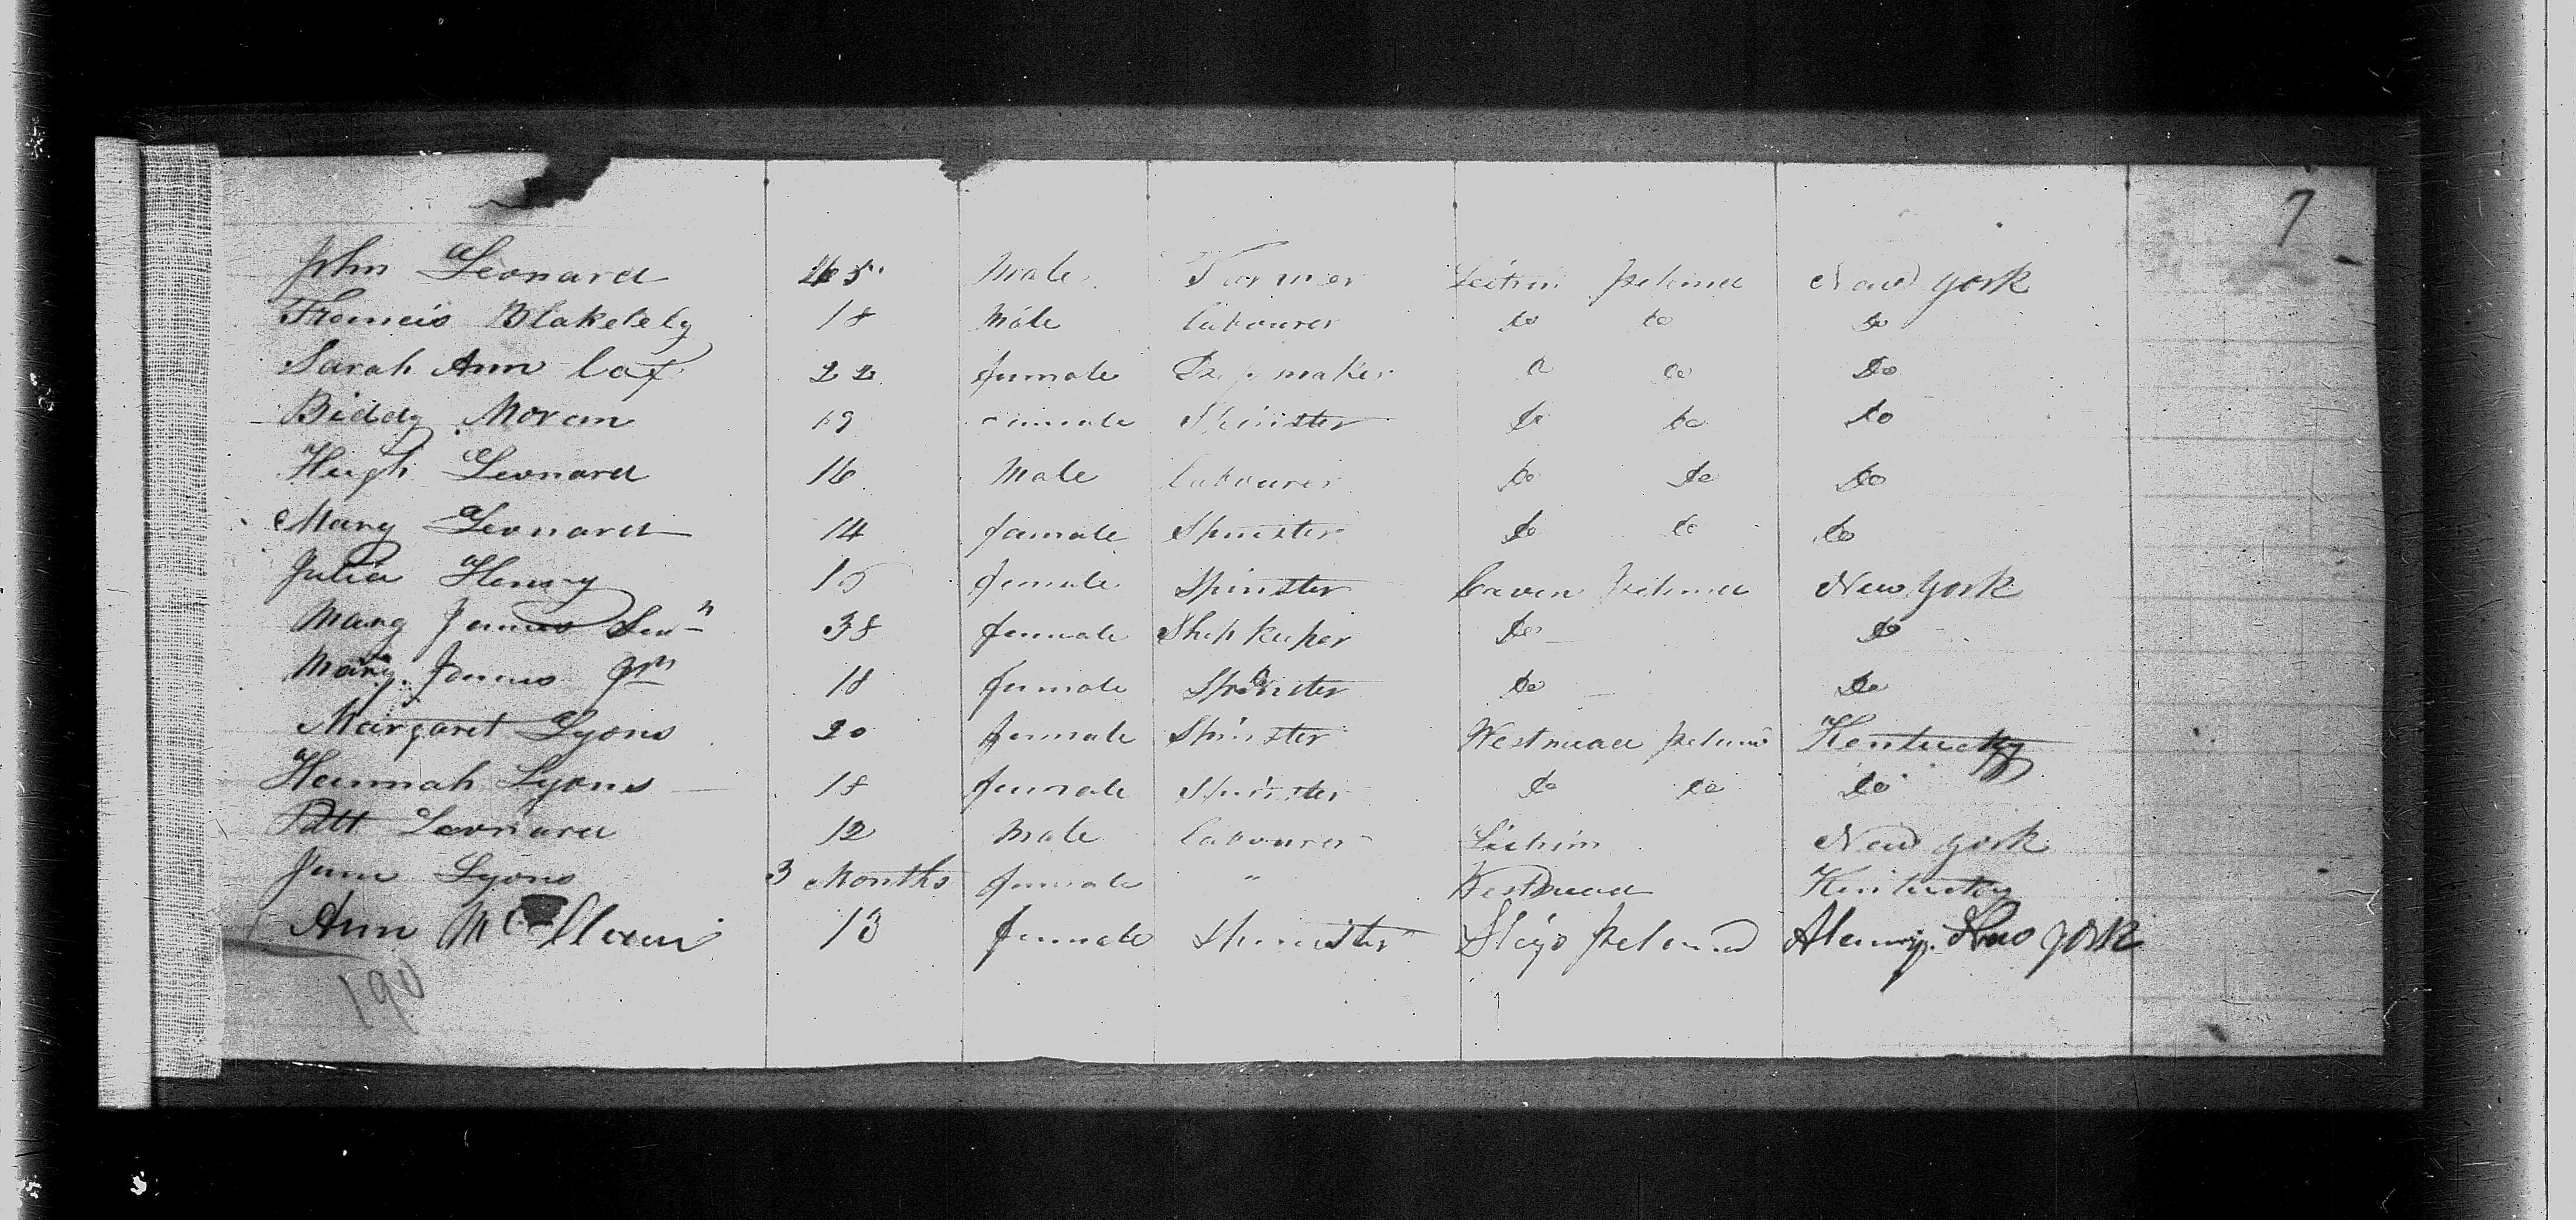 7
John Leonard 45 Male Farmer Leitrim Ireland New york
Francis Blakelely 18 Male labourer do do do
Sarah Ann Cox 22 female maker do do do
Biddy Moran 19 female Spinster do do do
Hugh Leonard 16 Male labourer do do do
Mary Leonard 14 female Spinster do do do
Julia Henry 15 female Spinster Caven Ireland New york
Mary James Senr 38 female Shop keeper Do do
Mary James Jnr 18 female Spinster Do do
Margaret Lyons 20 female Spinster Westmead Ireland Kentucky
Hannah Lyons 18 female Spinster do do do
Patt Leonard 12 Male labourer Leitrim New york
Jane Lyons 3 Months female " Westmead Kentucky
Ann 13 female Spinster Sligo Ireland New york
190